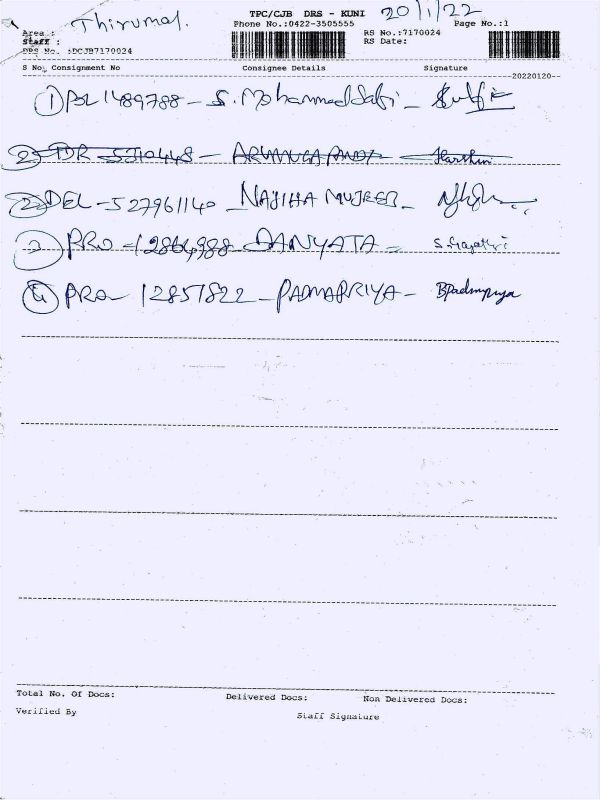 Thirumal.
TPC/CJB DRS - KUNI 20/1/22
Phone No.:0422-3505555 Page No.:1
Area :
Staff :
DRS No. :DCJB7170024
RS No.:7170024
RS Date:
S No. Consignment No Consignee Details Signature
20220120
① POL 1489788 - S. Mohammed Safi -
② - ARUMUGA PANDI - Harthin
② DEL - 527961140 - NAJIHA MUJEEB -
③ PRO - 12864988 DANYATA -
④ PRO - 12851822 - PADMAPRIYA - BPadmapriya
Total No. Of Docs: Delivered Docs: Non Delivered Docs:
Verified By Staff Signature